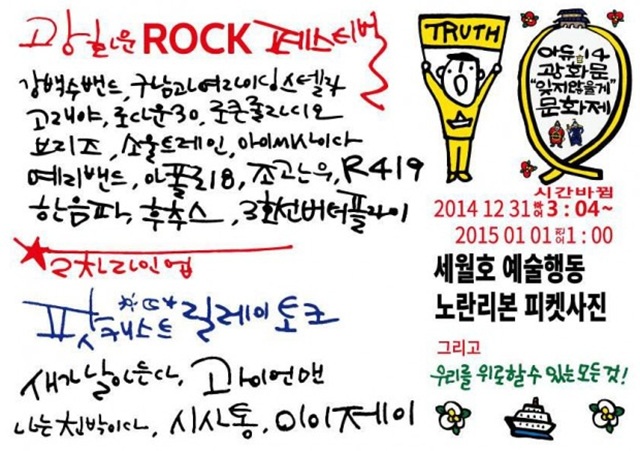 광화문 ROCK 페스티벌
강백수밴드, 구남과여라이딩스텔라
고래야, 로다운30, 로큰롤라디오
브리즈, 소울트레인, 아이씨사이다
예리밴드, 아폴로18, 조고는우, R419
한음파, 후추스, 3호선버터플라이
2차라인업
팟캐스트 릴레이토크
새가날아든다, 과이언맨
나는친박이다, 시사통, 이이제이
TRUTH
아듀'14
광화문
"잊지않을게"
문화제
시간바뀜
2014 12 31 3:04~
2015 01 01 1:00
세월호 예술행동
노란리본 피켓사진
그리고
우리를 위로할 수 있는 모든 것!